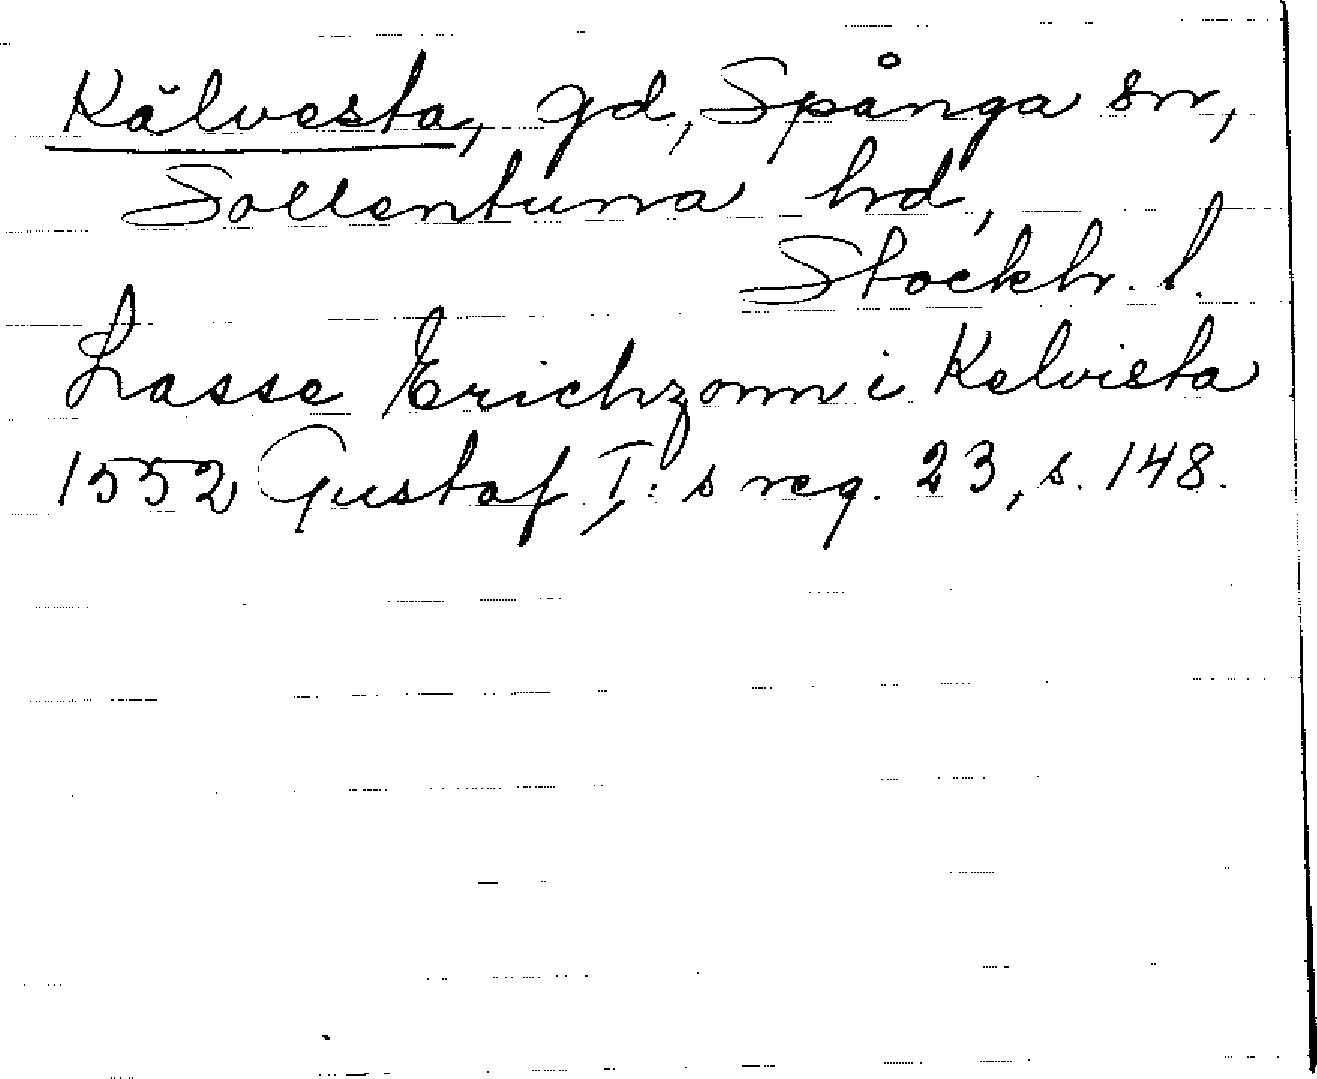 Kälvesta, gd, Spånga sn,
Sollentuna hrd,
Stockh. l.
Lasse Erichzonn i Kelvista
1552 Gustaf I:s reg. 23, s. 148.